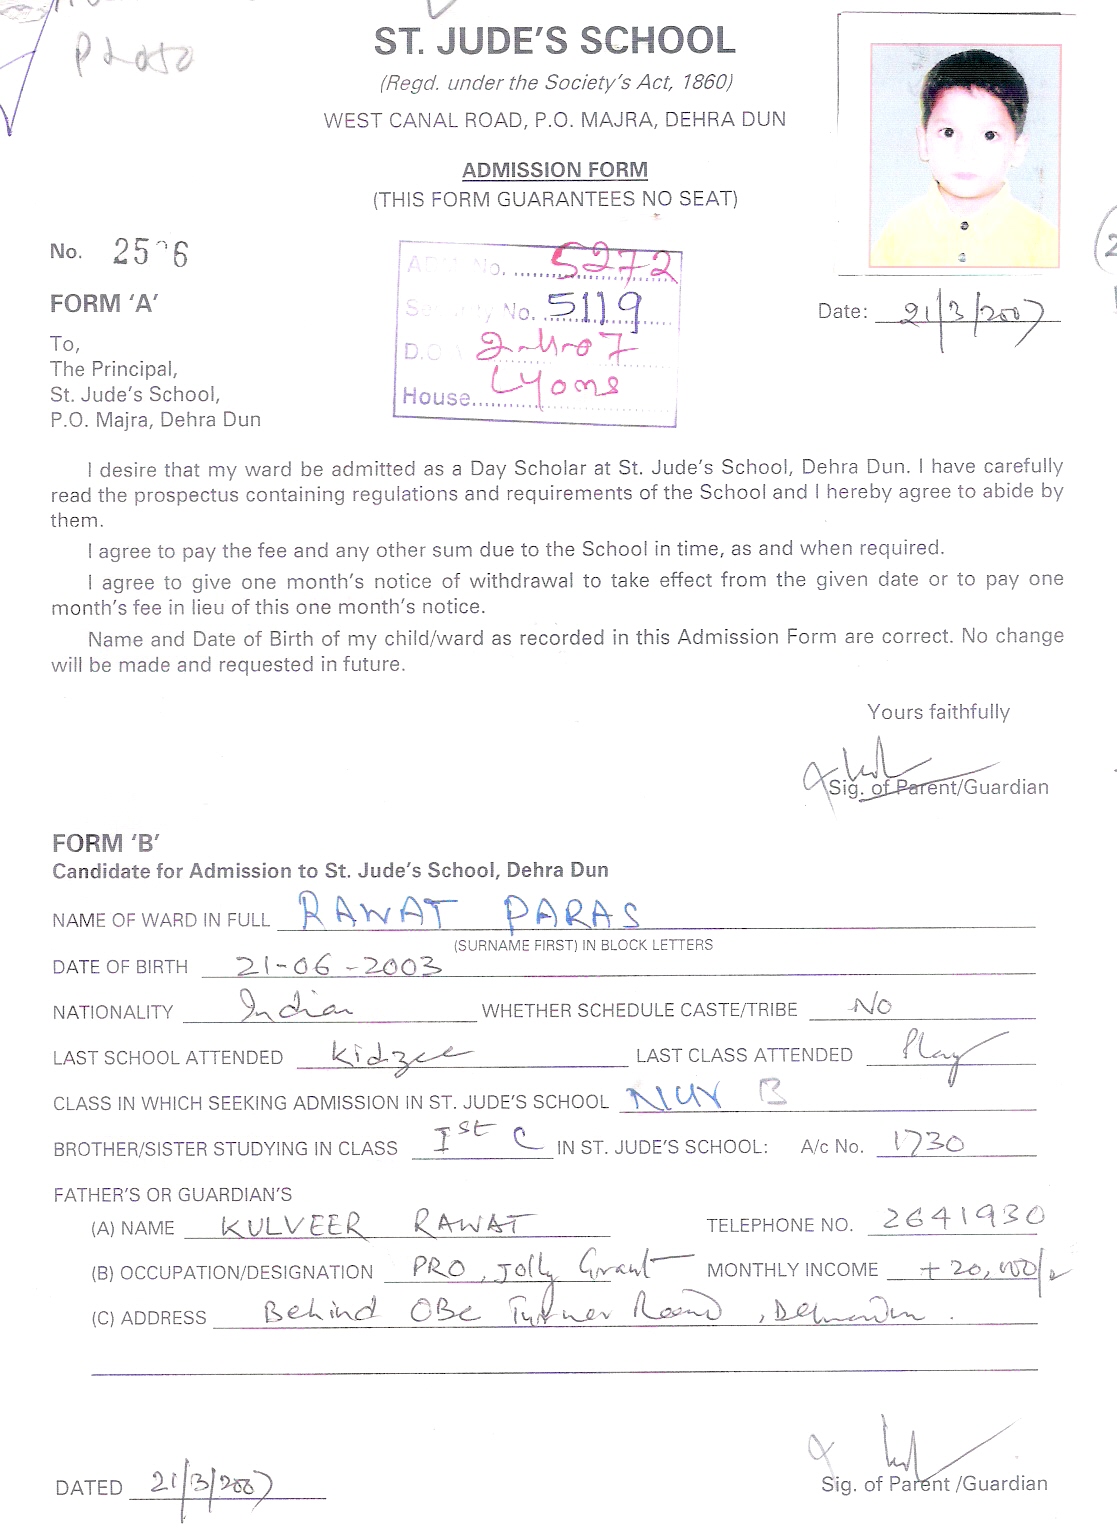 Photo
ST. JUDE'S SCHOOL
(Regd. under the Society's Act, 1860)
WEST CANAL ROAD, P.O. MAJRA, DEHRA DUN
ADMISSION FORM
(THIS FORM GUARANTEES NO SEAT)
No.
ADM No. 5272
FORM 'A'
Security No. 5119
Date: 21/3/2007
To,
D.O.A 2-4-07
The Principal,
House Lyons
St. Jude's School,
P.O. Majra, Dehra Dun
I desire that my ward be admitted as a Day Scholar at St. Jude's School, Dehra Dun. I have carefully
read the prospectus containing regulations and requirements of the School and I hereby agree to abide by
them.
I agree to pay the fee and any other sum due to the School in time, as and when required.
I agree to give one month's notice of withdrawal to take effect from the given date or to pay one
month's fee in lieu of this one month's notice.
Name and Date of Birth of my child/ward as recorded in this Admission Form are correct. No change
will be made and requested in future.
Yours faithfully
Sig. of Parent/Guardian
FORM 'B'
Candidate for Admission to St. Jude's School, Dehra Dun
NAME OF WARD IN FULL RAWAT PARAS
(SURNAME FIRST) IN BLOCK LETTERS
DATE OF BIRTH 21-06-2003
NATIONALITY Indian WHETHER SCHEDULE CASTE/TRIBE No
LAST SCHOOL ATTENDED Kidzee LAST CLASS ATTENDED Play
CLASS IN WHICH SEEKING ADMISSION IN ST. JUDE'S SCHOOL NUR B
BROTHER/SISTER STUDYING IN CLASS Ist C IN ST. JUDE'S SCHOOL: A/c No. 1730
FATHER'S OR GUARDIAN'S
(A) NAME KULVEER RAWAT TELEPHONE NO. 2641930
(B) OCCUPATION/DESIGNATION PRO, Jolly Grant MONTHLY INCOME +20,000/-
(C) ADDRESS Behind OBC Turner Road, Dehradun.
DATED 21/3/2007 Sig. of Parent /Guardian